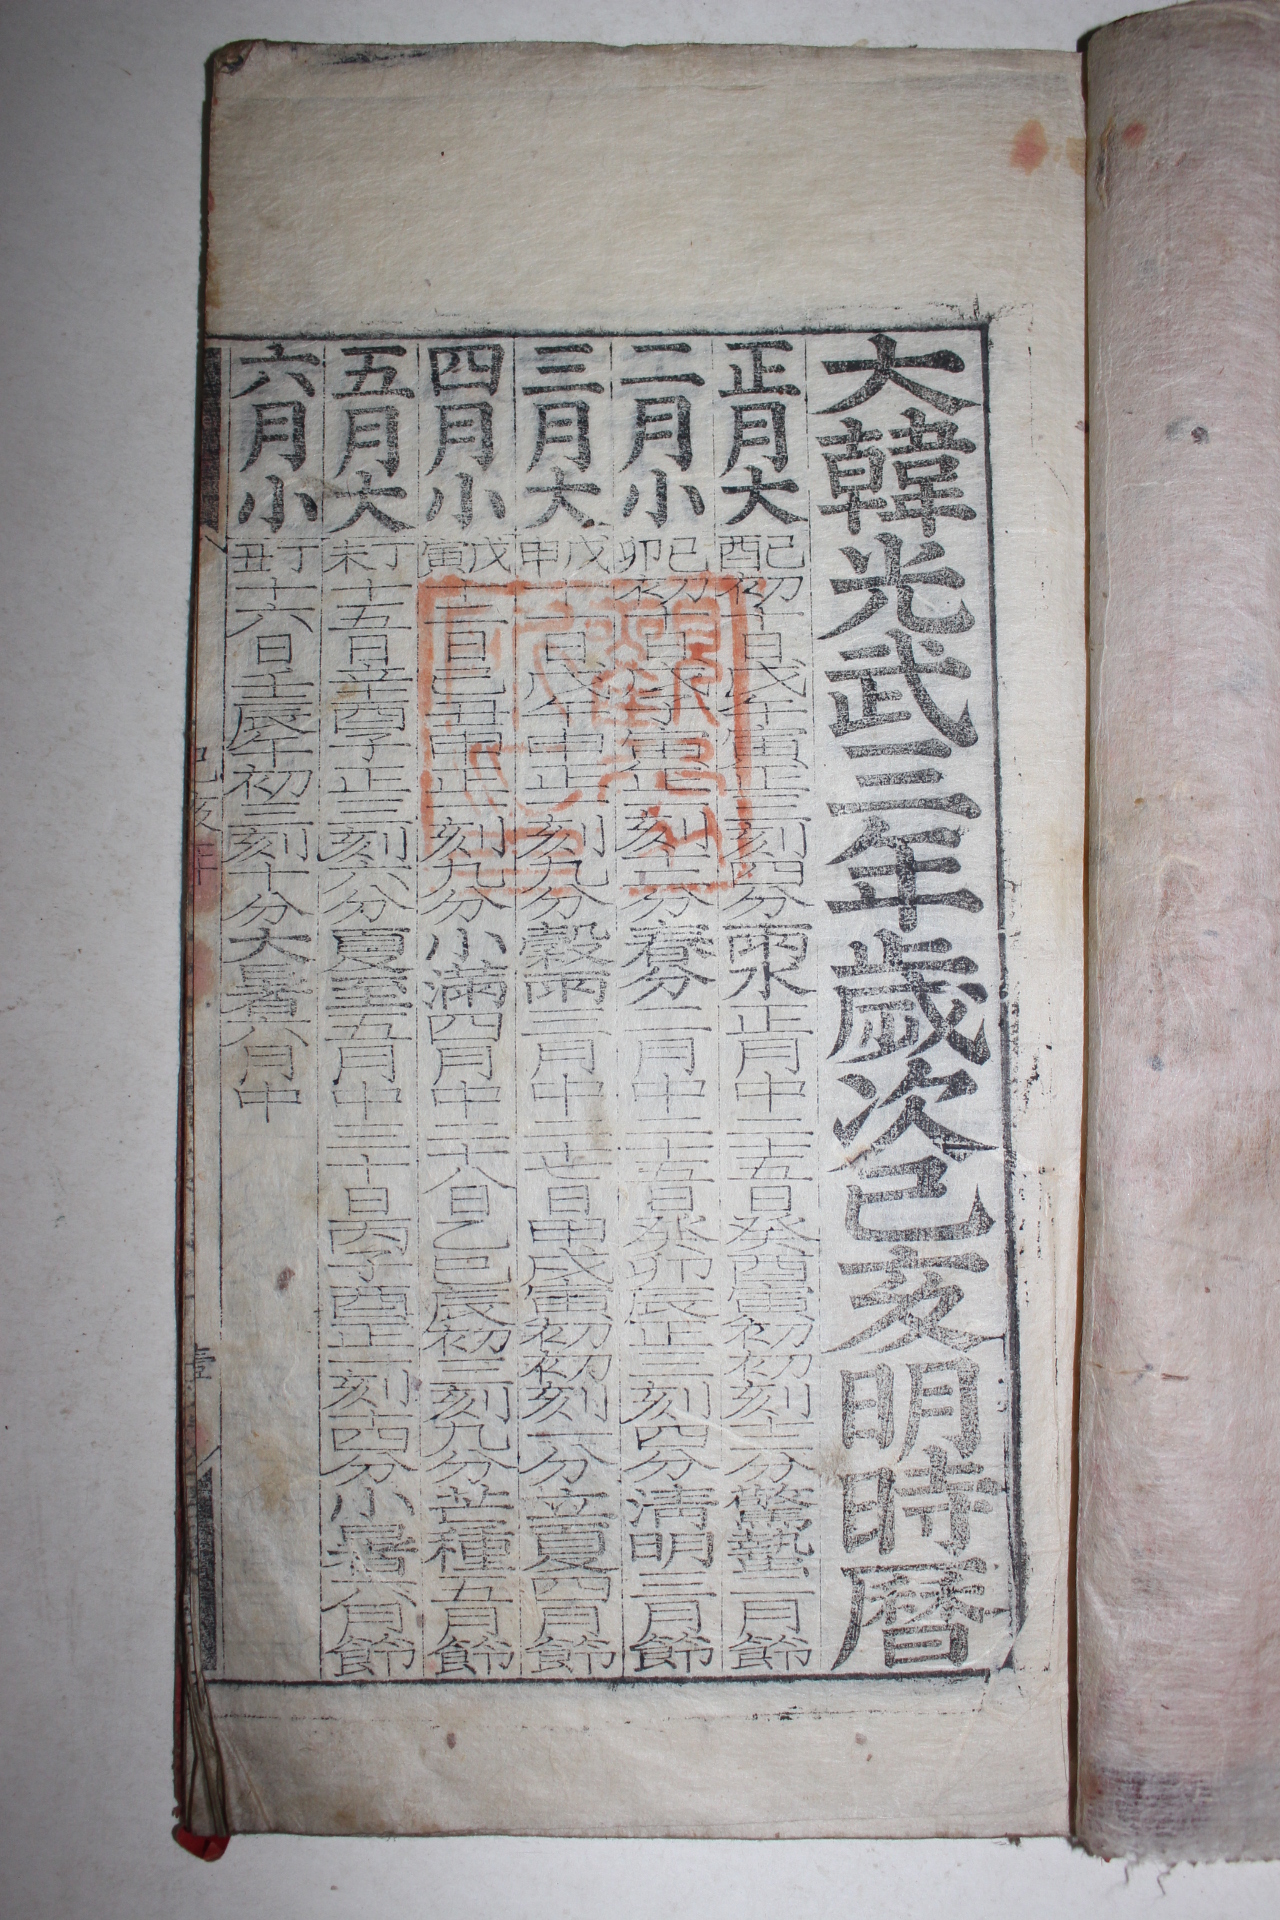 大韓光武三年歲次己亥明時曆
正月大己酉初十日戊午寅正三刻四分雨水正月中二十五日癸酉寅初初刻十三分驚蟄二月節
二月小己卯初十日戊子寅正一刻十二分春分二月中二十五日癸卯辰正三刻四分淸明三月節
三月大戊申十一日戊午申正一刻九分穀雨三月中二十七日甲戌寅初初刻一分立夏四月節
四月小戊寅十二日己丑申正一刻九分小滿四月中二十八日乙巳辰初三刻九分芒種五月節
五月大丁未十五日辛酉子正三刻六分夏至五月中三十日丙子酉正一刻十四分小暑六月節
六月小丁丑十六日壬辰午初三刻十分大暑六月中
己亥年
壹